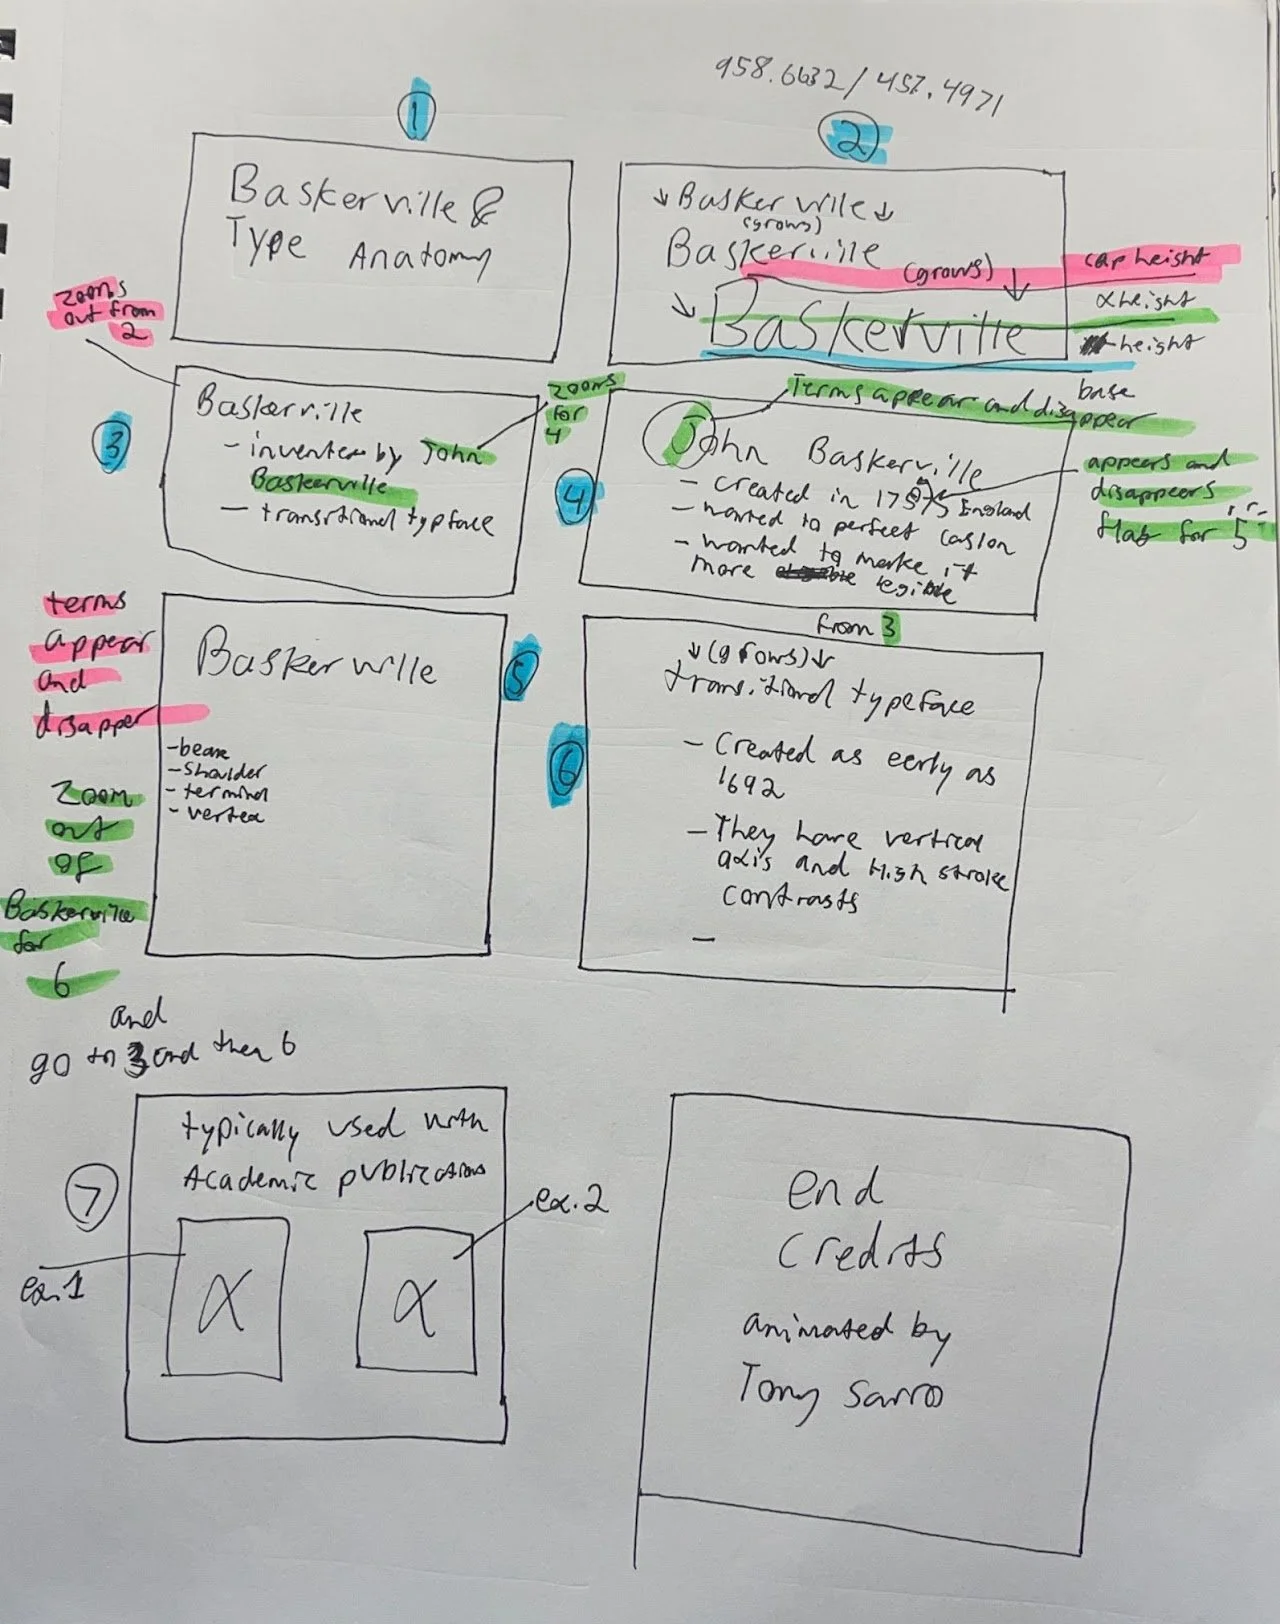 958.6632 / 457.4971
1
2
Baskerville &
Type Anatomy
Baskerville
(grows)
Baskerville
(grows)
Baskerville
cap height
x height
height
base
zooms
out from
2
3
Baskerville
- invented by John
Baskerville
- transitional typface
zooms
for
4
Terms appear and disappear
4
John Baskerville
- created in 1757, England
- wanted to perfect caslon
- wanted to make it
more legible
appears and
disappears
flab for 5
from 3
terms
appear
and
disapper
5
Baskerville
- beak
- shoulder
- terminal
- vertex
Zoom
out
of
Baskerville
for
6
and
go to 3 and then 6
6
(grows)
transitional typeface
- Created as early as
1692
- They have vertical
axis and High stroke
contrasts
-
7
typically used with
Academic publications
ex.1
ex.2
x
x
end
credits
animated by
Tony Sarro